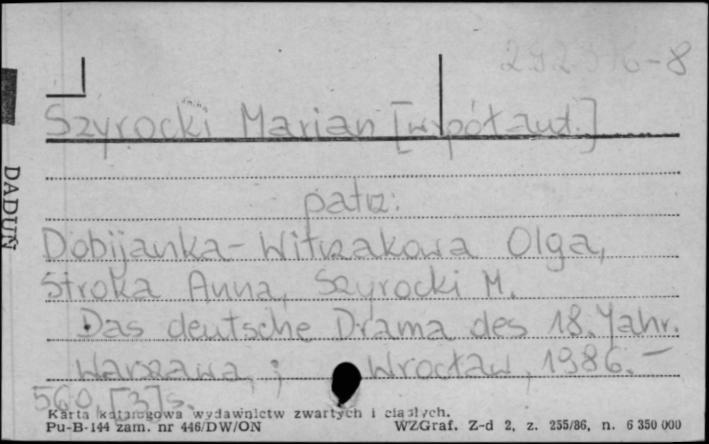 292976-8
Szyrocki Marian [współaut.]
patrz:
Dobijanka-Witczakowa Olga,
Stroka Anna, Szyrocki M.
Das deutsche Drama des 18. Jahr.
Warszawa ; Wrocław, 1986. –
560, [3] s.
Karta katalogowa wydawnictw zwartych i ciągłych.
Pu-B-144 zam. nr 446/DW/ON WZGraf. Z-d 2, z. 255/86, n. 6 350 000
DADUŃ